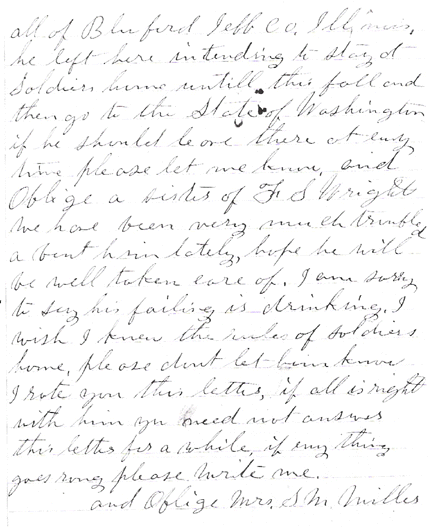 all of Bluford Jeff Co. Illinois,
he left here intending to stay at
Soldiers home untill this fall and
then go to the State of Washington
if he should leave there at eny
time please let me know, and
Oblige a sister of F S Wright
we have been very much troubled
a bout him lately, hope he will
be well taken care of. I am sorry
to say his failing is drinking. I
wish I knew the rules of soldiers
home, please dont let him know
I rote you this letter, if all is right
with him you need not answer
this letter for a while, if eny thing
goes rong please write me.
and Oblige Mrs. S M Miller